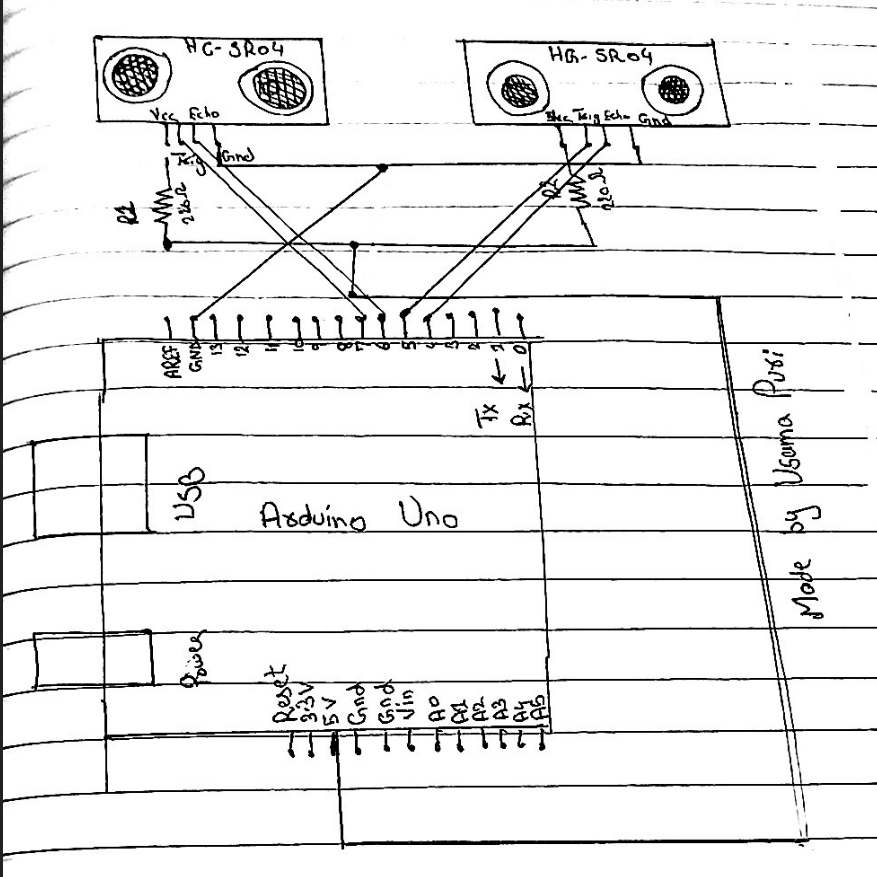 HC-SR04
HC-SR04
Vcc Echo
Trig
Gnd
Vcc Trig Echo Gnd
R1
220Ω
R2
220Ω
AREF GND 13 12 11 10 9 8 7 6 5 4 3 2 1 0
Tx Rx
USB
Arduino Uno
Power
Reset 3.3V 5V Gnd Gnd Vin A0 A1 A2 A3 A4 A5
Made by Usama Puri